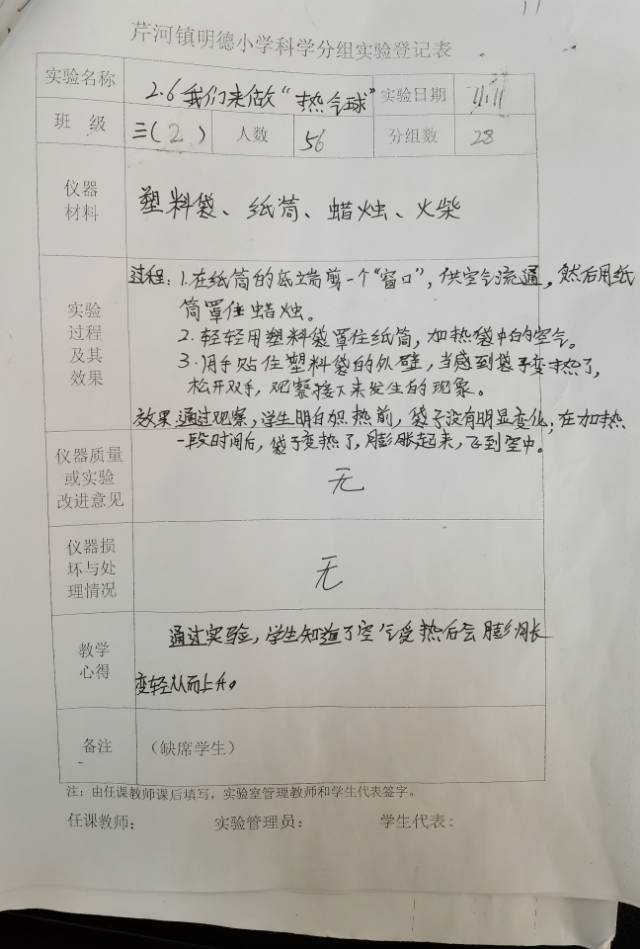 芹河镇明德小学科学分组实验登记表
实验名称 2.6我们来做“热气球” 实验日期 11.11
班 级 三(2) 人数 56 分组数 28
仪器
材料
塑料袋、纸筒、蜡烛、火柴
实验
过程
及其
效果
过程:1.在纸筒的底端剪一个“窗口”,供空气流通,然后用纸
筒罩住蜡烛。
2.轻轻用塑料袋罩住纸筒,加热袋中的空气。
3.用手贴住塑料袋的外壁,当感到袋子变热了,
松开双手,观察接下来发生的现象。
效果:通过观察,学生明白加热前,袋子没有明显变化;在加热
一段时间后,袋子变热了,膨胀起来,飞到空中。
仪器质量
或实验
改进意见
无
仪器损
坏与处
理情况
无
教学
心得
通过实验,学生知道了空气受热后会膨胀
变轻从而上升。
备注 (缺席学生)
注:由任课教师课后填写,实验室管理教师和学生代表签字。
任课教师: 实验管理员: 学生代表: